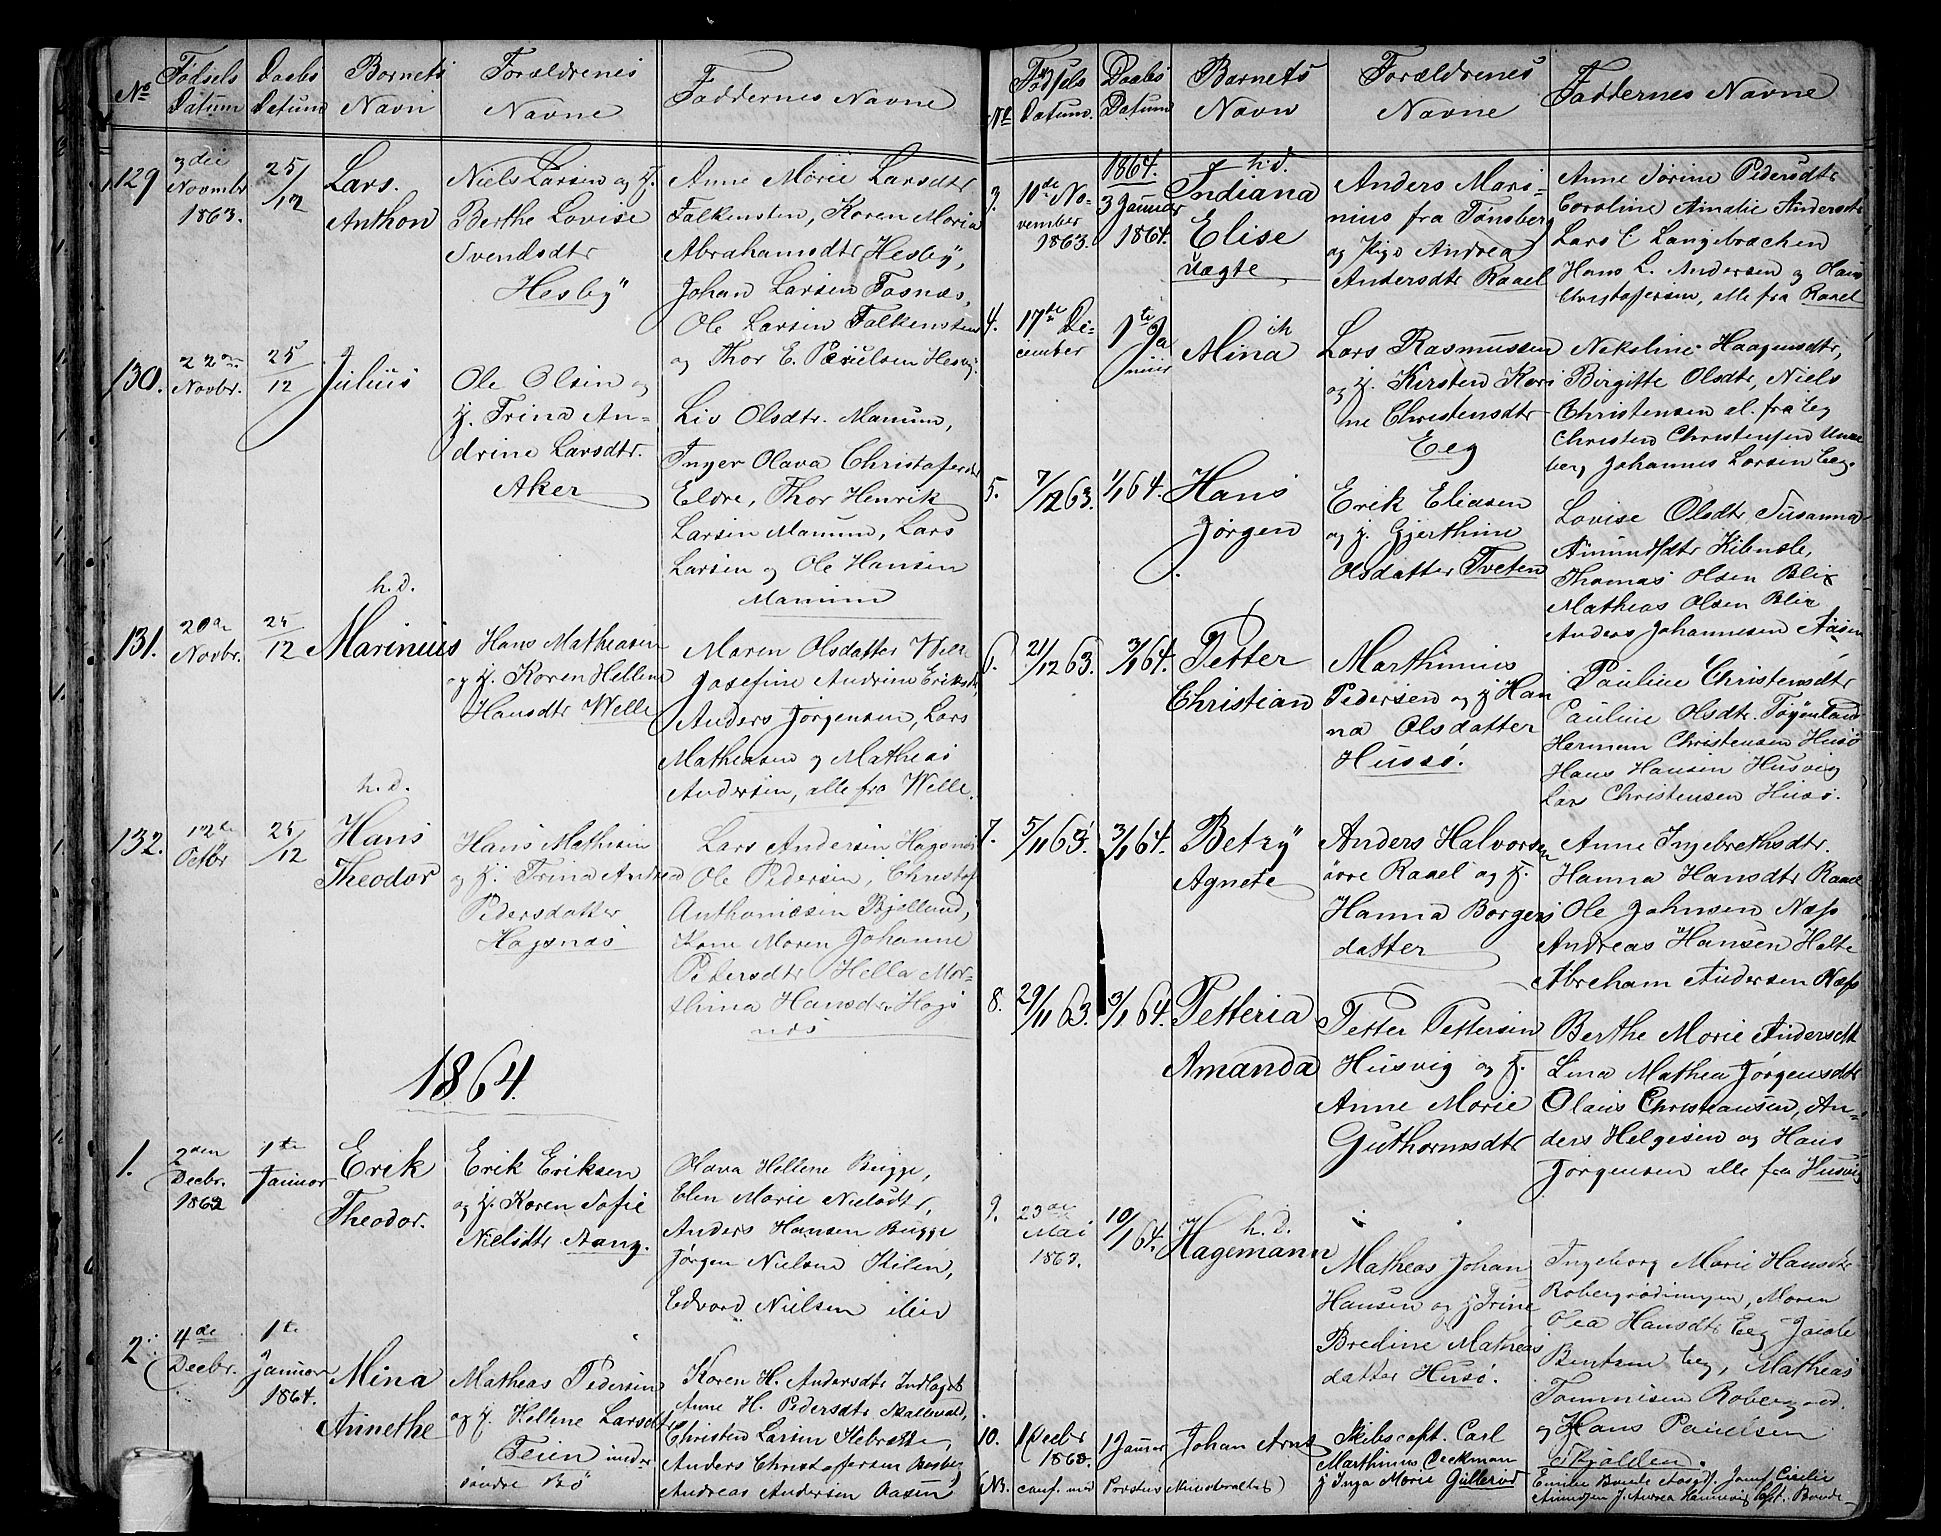 No
Fødsels Datum
Daabs Datum
Barnets Navn
Forældrenes Navne
Faddernes Navne
129
3die Novmbr 1863.
25/12
Lars. Anthon
Niels Larsen og H.
Berthe Lovise
Svendsdtr
Hesby
Anne Marie Larsdtr
Falkensten, Karen Maria
Abrahamsdtr Hesby,
Johan Larsen Fosnæs,
Ole Larsen Falkensten
og Thor E. Paulsen Hesby.
130.
22de Novbr.
25/12
Julius
Ole Olsen og
H. Trina An-
drine Larsdtr.
Aker
Liv Olsdtr. Manum,
Inger Olava Christofersdtr
Eldre, Thor Henrik
Larsen Manum, Lars
Larsen og Ole Hansen
Manum
131.
20de Novbr.
25/12
h.d.
Marinius
Hans Matheasen
og H. Karen Hellene
Hansdtr Welle
Maren Olsdatter Welle
Josefine Andrine Eriksdtr
Anders Jørgensen, Lars
Matheasen og Matheas
Andersen, alle fra Welle.
132.
12te Octbr
25/12
h.d.
Hans Theodor
Hans Mathesen
og H. Trina Andrea
Pedersdatter
Hagsnæs
Lars Andersen Hagsnæs
Ole Pedersen, Christof
Anthonissen Bjelland,
Kone Maren Johanne
Petersdtr Hella Mar-
thina Hansdtr Hags
næs
1864.
1.
2den Decbr. 1863
1te Januar
Erik Theodor.
Erik Eriksen
og H. Karen Sofie
Nielsdtr Aang.
Olava Hellene Bugge,
Elen Marie Nielsdtr,
Anders Hansen Bugge
Jørgen Nielsen Kilen,
Edvard Nielsen
2.
4de Decbr.
1te Januar 1864.
Mina Annethe
Matheas Pedersen
og H. Hellene Larsdtr
Feien under
søndre Bø
Karen H. Andersdtr Indlaget
Anne H. Pedersdtr Skallevald,
Christen Larsen
Anders Christofersen
Andreas Andersen Aasen
No
Fødsels Datum.
Daabs Datum
Barnets Navn
Forældrenes Navne
Faddernes Navne
1864.
3.
10de November 1863.
3 Januar 1864.
h.d.
Indiana Elise
uægte
Anders Mari-
nius fra Tønsberg
og Pige Andrea
Andersdtr Raael
Anne Sorine Pedersdtr
Caroline Amalie Andersdtr
Lars C Langebrachen
Hans L. Andersen og Hans
Christofersen, alle fra Raael
4.
17te December
1te Januar
Mina
Lars Rasmussen
og H. Kirsten Kari
ne Christensdtr
Eeg
Nekoline Haagensdtr,
Birgitte Olsdtr, Niels
Christensen al. fra Eeg
Christen Christensen Unne
berg Johannes Larsen Eeg.
5.
7/12 63.
1/1 64.
Hans Jørgen
Erik Eliasen
og H. Gjerthine
Olsdatter Tveten
Lovise Olsdtr Susanna
Amundsdtr
Thomas Olsen Blix
Matheas Olsen Blix
Anders Johannesen Aasen
6.
21/12 63.
3/1 64.
Petter Christian
Marthinius
Pedersen og H Han
na Olsdatter
Hussø.
Pauline Christensdtr
Pauline Olsdtr.
Herman Christensen Husø
Hans Hansen Husvig
Lar Christensen Husø.
7.
5/11 63.
3/1 64.
Betzy Agnete
Anders Halvorsen
øvre Raael og H.
Hanna Borgers
datter
Anne Ingebrethsdtr.
Hanna Hansdtr Raael
Ole Johnsen Næss
Andreas Hansen Holte
Abraham Andersen Næss
8.
29/11 63.
3/1 64.
Petteria Amanda
Petter Pettersen
Husvig og H.
Anne Marie
Guthormsdtr
Berthe Marie Andersdtr
Lina Mathea Jørgensdtr
Olaus Christiansen, An-
ders Helgesen og Hans
Jørgensen alle fra Husvig
9.
23de Mai 1863.
10/1 64.
h.d.
Hagemann
Matheas Johan
Hansen og H Trine
Bredine Matheas
datter Husø.
Ingeborg Marie Hansdtr
Robergrødningen, Maren
Olea Hansdtr Eeg Jacob
Bentsen Eeg, Matheas
Tommesen Robergrød.
og Hans Paulsen
Skjolden.
10.
1 Decbr 1863.
1 Januar
Johan Arnt
Skibscapt. Carl
Marthinus Beckman
H Inga Marie Gullerød
(NB. conf. med